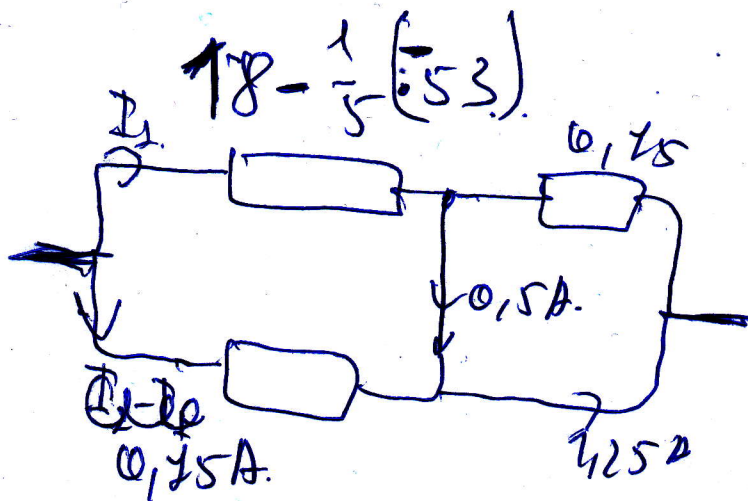 18 - 1/5 (-53)
I₁
0,75
0,5A.
0,75A.
1,25A